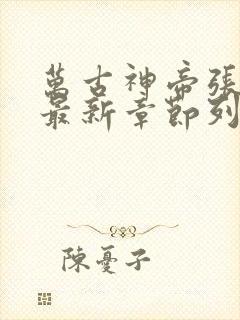 萬古神帝張
最新章節列
陳憂子